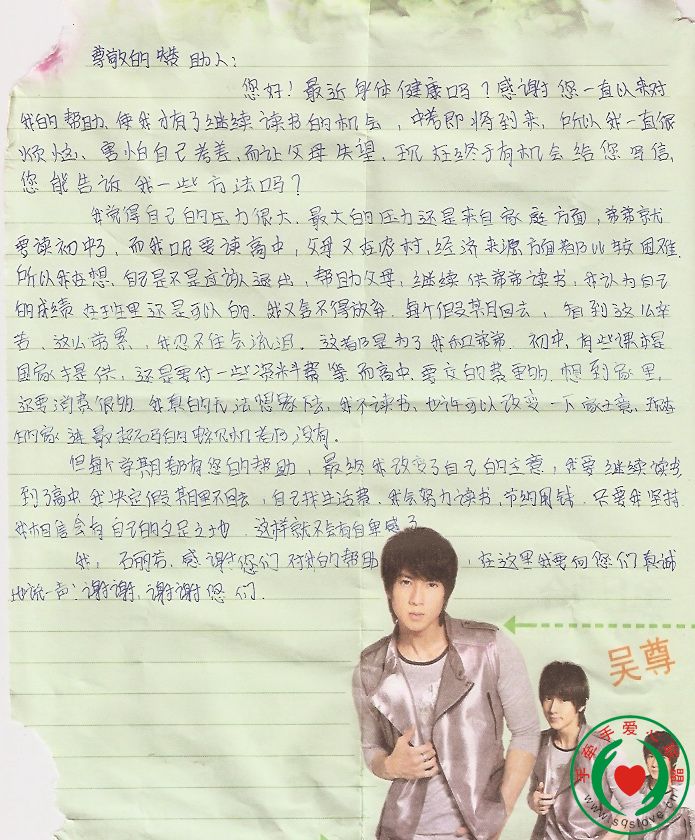 尊敬的赞助人:
您好!最近身体健康吗?感谢您一直以来对
我的帮助、使我才有了继续读书的机会,中考即将到来,所以我一直很
烦恼、害怕自己考差,而让父母失望,现在终于有机会给您写信,
您能告诉我一些方法吗?
我觉得自己的压力很大、最大的压力还是来自家庭方面,弟弟就
要读初中了,而我呢要读高中,父母又在农村,经济来源方面都比较困难.
所以我在想,自己是不是应该退出,帮助父母,继续供弟弟读书,我认为自己
的成绩在班里还是可以的,我又舍不得放弃.每个假期回去,看到这么辛
苦、这么劳累,我忍不住会流泪.这都是为了我和弟弟.初中,有些课本是
国家提供,还是要付一些资料费等,而高中,要交的费更多,想到家里,
还要消费很多,我真的无法想象下去,我不读书,也许可以改变一下家庭,
的家连最起码的电视机都没有。
但每个学期都有您的帮助,最终我改变了自己的主意,我要继续读书
到了高中,我决定假期里不回去,自己找生活费,我会努力读书,节约用钱.只要我坚持
我相信会有自己的立足之地.这样就不会有自卑感了
我,石丽芳,感谢您们对我的帮助,在这里我要向您们真诚
地说一声:谢谢,谢谢您们.
吴尊
手牵手爱心联盟
www.sqslove.cn